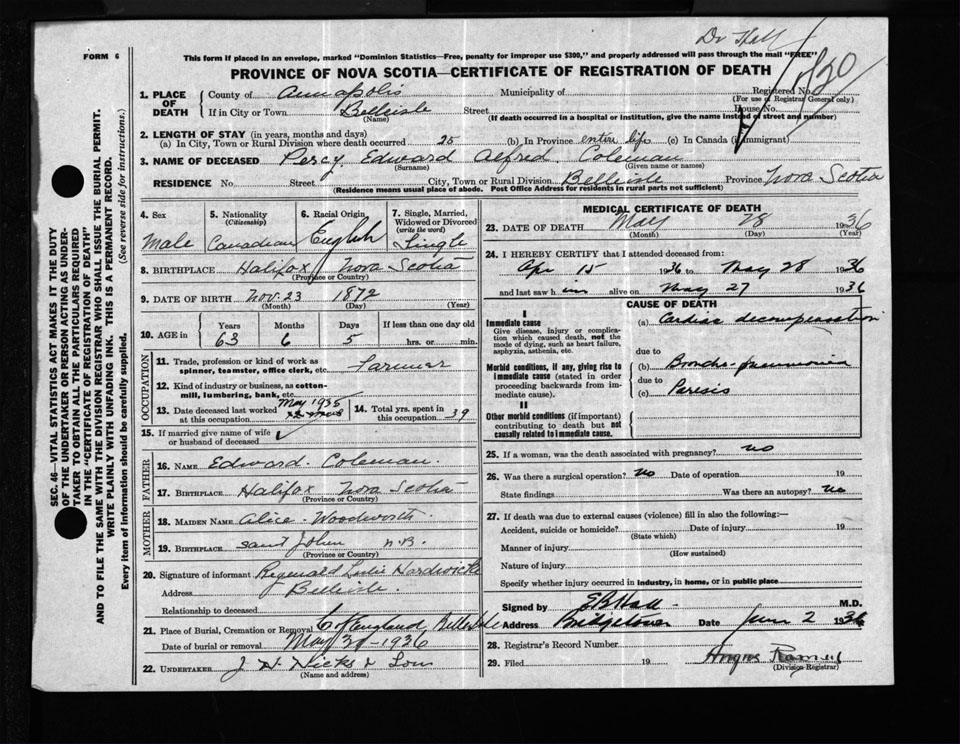 Dr Hall
FORM 6
This form if placed in an envelope, marked "Dominion Statistics—Free, penalty for improper use $300," and properly addressed will pass through the mail "FREE"
PROVINCE OF NOVA SCOTIA—CERTIFICATE OF REGISTRATION OF DEATH
1. PLACE OF DEATH
County of Annapolis Municipality of Registered No.
(For use of Registrar General only)
If in City or Town Belleisle Street House No.
(Name) (If death occurred in a hospital or institution, give the name instead of street and number)
2. LENGTH OF STAY (in years, months and days)
(a) In City, Town or Rural Division where death occurred 25 (b) In Province entire life (c) In Canada (if immigrant)
3. NAME OF DECEASED Percy Edward Alfred Coleman
(Surname) (Given name or names)
RESIDENCE No. Street City, Town or Rural Division Belleisle Province Nova Scotia
(Residence means usual place of abode. Post Office Address for residents in rural parts not sufficient)
4. Sex Male
5. Nationality (Citizenship) Canadian
6. Racial Origin English
7. Single, Married, Widowed or Divorced (write the word) Single
8. BIRTHPLACE Halifax Nova Scotia
(Province or Country)
9. DATE OF BIRTH Nov. 23 1872
(Month) (Day) (Year)
10. AGE in Years Months Days If less than one day old
63 6 5 hrs. or min.
OCCUPATION
11. Trade, profession or kind of work as spinner, teamster, office clerk, etc. Farmer
12. Kind of industry or business, as cotton-mill, lumbering, bank, etc.
13. Date deceased last worked at this occupation May 1935
14. Total yrs. spent in this occupation 39
15. If married give name of wife or husband of deceased
FATHER
16. NAME Edward Coleman
17. BIRTHPLACE Halifax Nova Scotia
(Province or Country)
MOTHER
18. MAIDEN NAME Alice Woodworth
19. BIRTHPLACE Saint John N.B.
(Province or Country)
20. Signature of informant Leslie Hardwick
Address Belleisle
Relationship to deceased
21. Place of Burial, Cremation or Removal C of England Belleisle
Date of burial or removal May 1936
22. UNDERTAKER Hicks & Son
(Name and address)
MEDICAL CERTIFICATE OF DEATH
23. DATE OF DEATH May 28 1936
(Month) (Day) (Year)
24. I HEREBY CERTIFY that I attended deceased from:
Apr 15 1936 to May 28 1936
and last saw him alive on May 27 1936
CAUSE OF DEATH
I
Immediate cause
Give disease, injury or complication which caused death, not the mode of dying, such as heart failure, asphyxia, asthenia, etc.
(a) Cardiac decompensation
due to
Morbid conditions, if any, giving rise to immediate cause (stated in order proceeding backwards from immediate cause).
(b) Broncho-pneumonia
due to
(c) Paresis
II
Other morbid conditions (if important) contributing to death but not causally related to immediate cause.
25. If a woman, was the death associated with pregnancy? no
26. Was there a surgical operation? no Date of operation 19
State findings Was there an autopsy? no
27. If death was due to external causes (violence) fill in also the following:—
Accident, suicide or homicide? Date of injury 19
(State which)
Manner of injury
(How sustained)
Nature of injury
Specify whether injury occurred in industry, in home, or in public place
Signed by E B Hall M.D.
Address Bridgetown Date June 2 1936
28. Registrar's Record Number
29. Filed 19 Angus
(Division Registrar)
SEC. 46—VITAL STATISTICS ACT MAKES IT THE DUTY
OF THE UNDERTAKER OR PERSON ACTING AS UNDER-
TAKER TO OBTAIN ALL THE PARTICULARS REQUIRED
IN THE "CERTIFICATE OF REGISTRATION OF DEATH"
AND TO FILE THE SAME WITH THE DIVISION REGISTRAR WHO SHALL ISSUE THE BURIAL PERMIT.
WRITE PLAINLY WITH UNFADING INK. THIS IS A PERMANENT RECORD.
Every item of information should be carefully supplied. (See reverse side for instructions.)